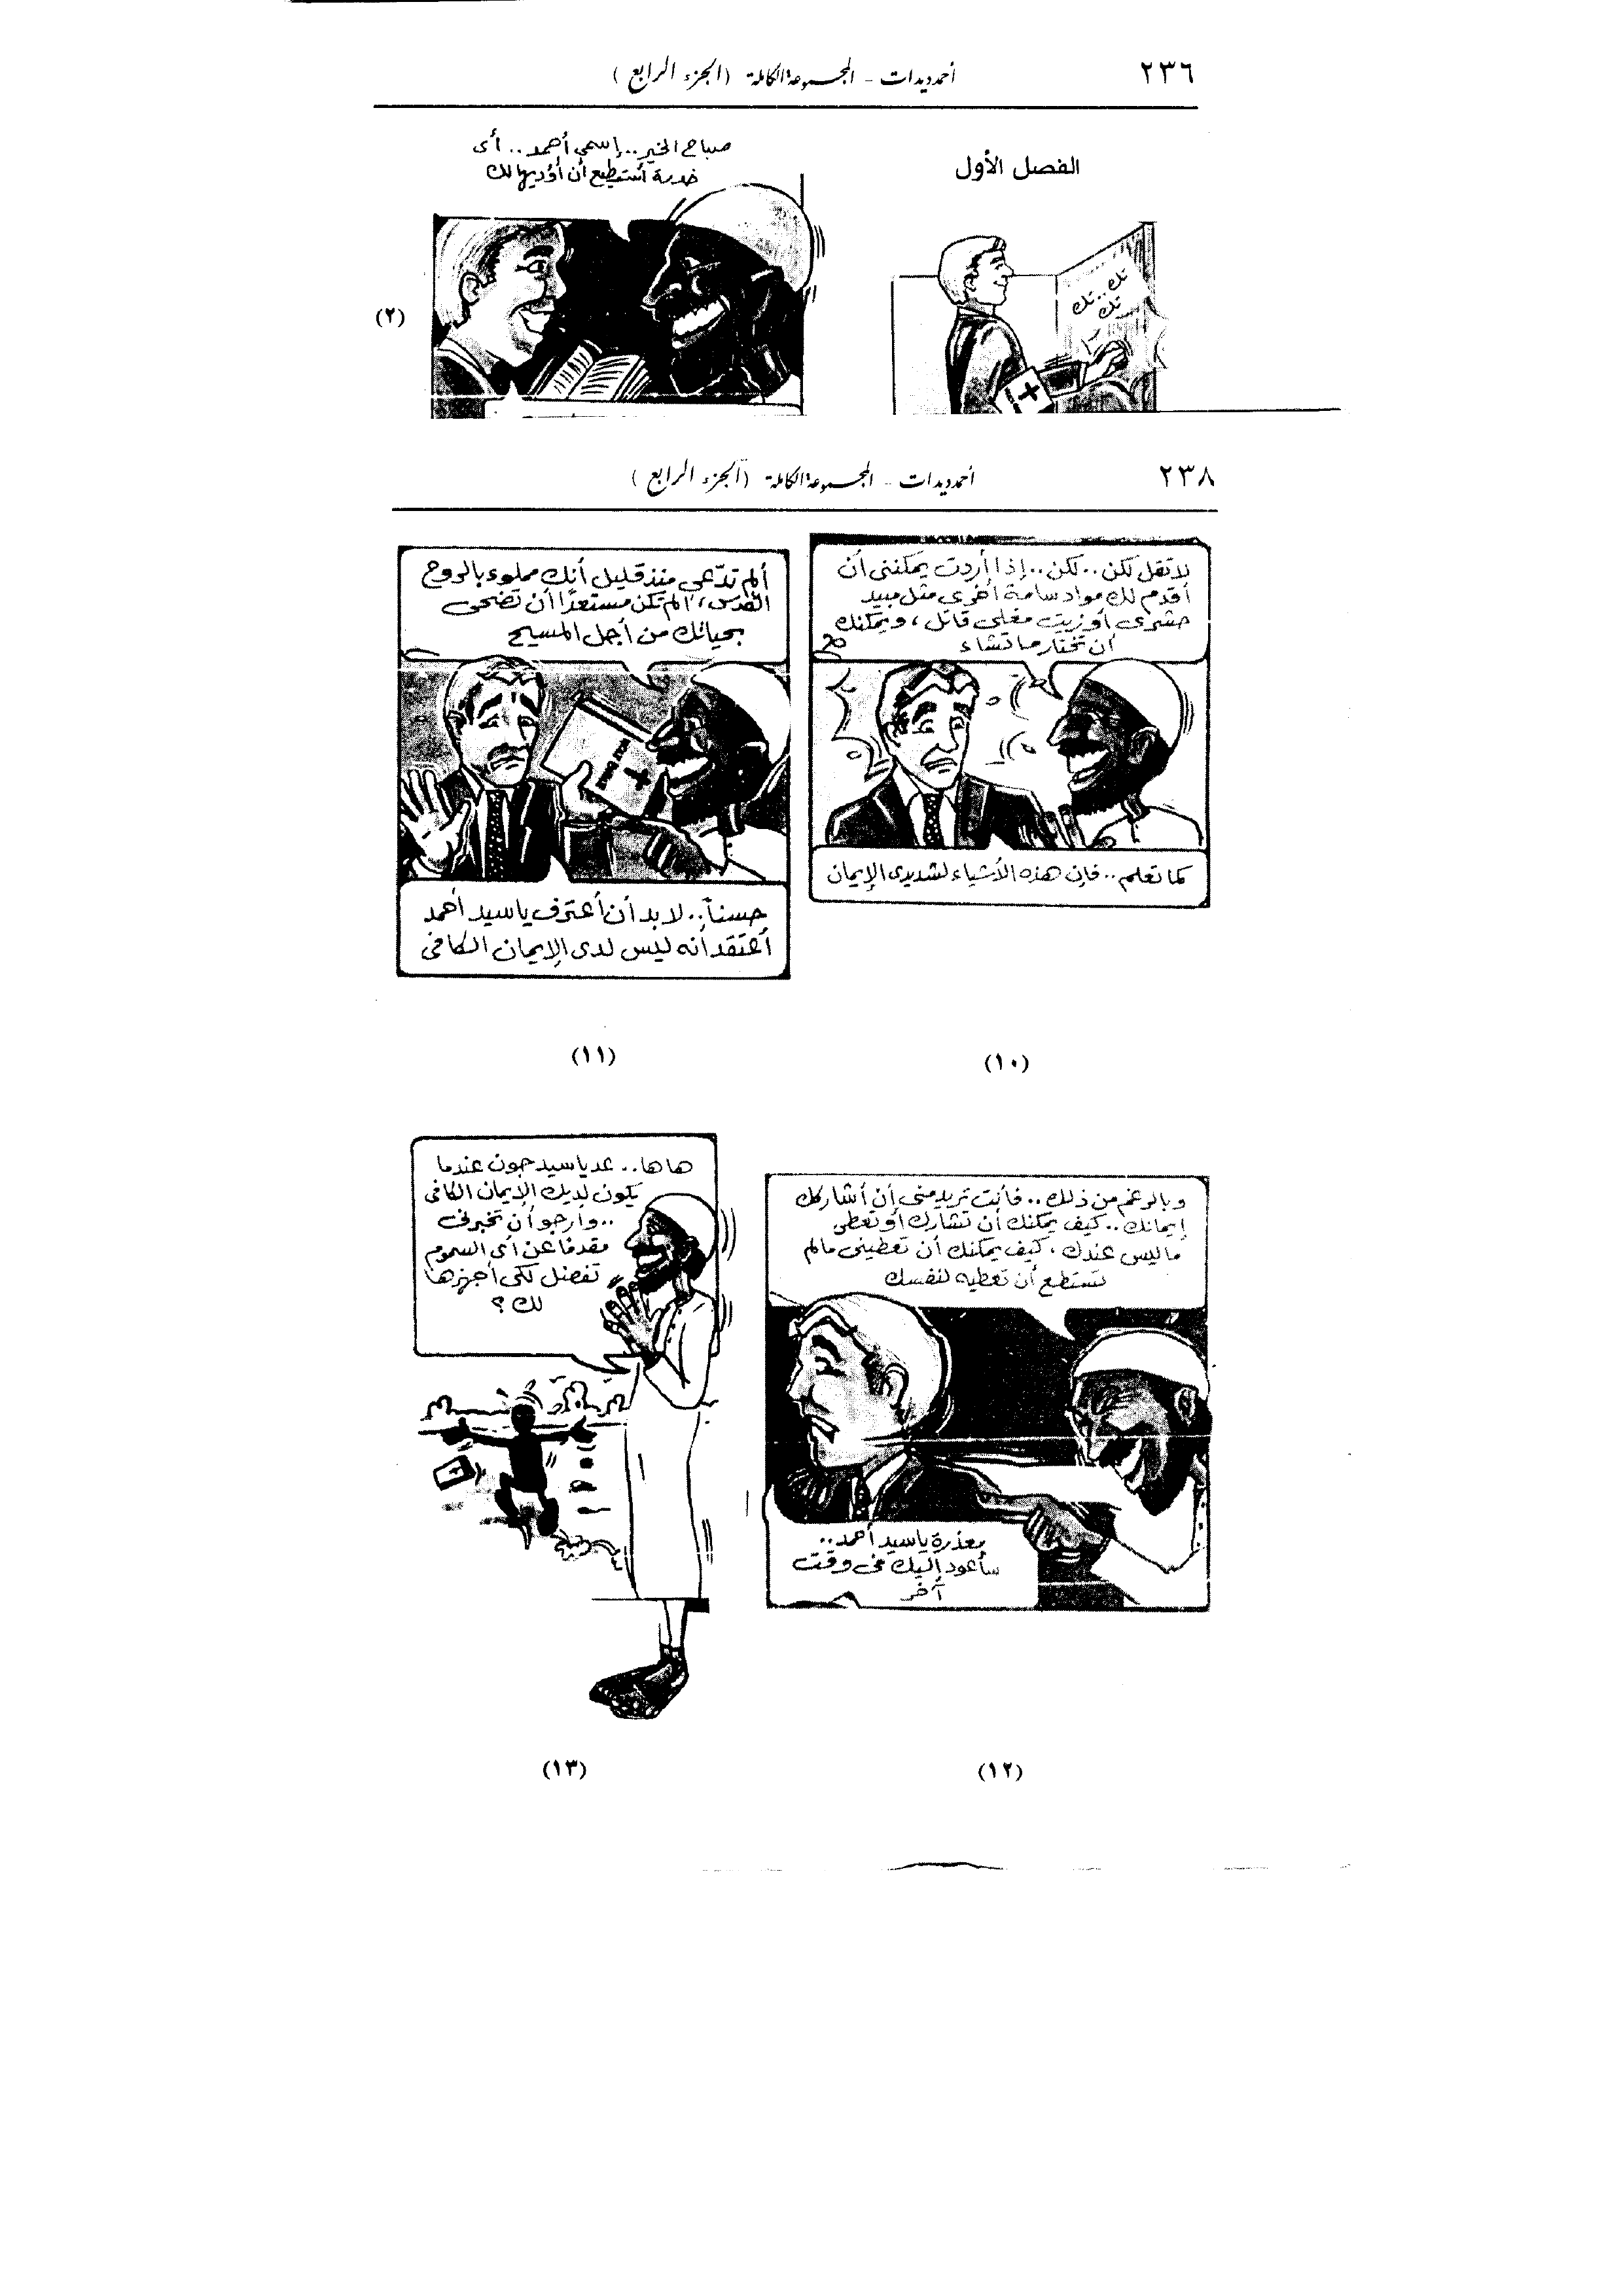 ٢٣٦
أحمد ديدات - المجموعة الكاملة (الجزء الرابع)
الفصل الأول
تك .. تك
تك
صباح الخير .. إسمي أحمد .. أى
خدمة أستطيع أن أؤديها لك
(٢)
٢٣٨
أحمد ديدات - المجموعة الكاملة (الجزء الرابع)
لا تقل لكن .. لكن .. إذا أردت يمكننى أن
أقدم لك مواد سامة أخرى مثل مبيد
حشرى أو زيت مغلى قاتل ، ويمكنك
أن تختار ما تشاء
كما تعلم .. فإن هذه الأشياء لشديدى الإيمان
(١٠)
ألم تدّعى منذ قليل أنك مملوء بالروح
القدس ، ألم تكن مستعدًا أن تضحى
بحياتك من أجل المسيح
HOLY BIBLE
حسناً .. لا بد أن أعترف يا سيد أحمد
أعتقد أنه ليس لدى الإيمان الكافى
(١١)
وبالرغم من ذلك .. فأنت تريد منى أن أشاركك
إيمانك .. كيف يمكنك أن تشارك أو تعطى
ما ليس عندك ، كيف يمكنك أن تعطينى ما لم
تستطع أن تعطيه لنفسك
معذرة يا سيد أحمد ..
سأعود إليك فى وقت
آخر
(١٢)
ها ها .. عد يا سيد جون عندما
يكون لديك الإيمان الكافى
.. وأرجو أن تخبرنى
مقدمًا عن أى السموم
تفضل لكى أجهزها
لك ؟
(١٣)